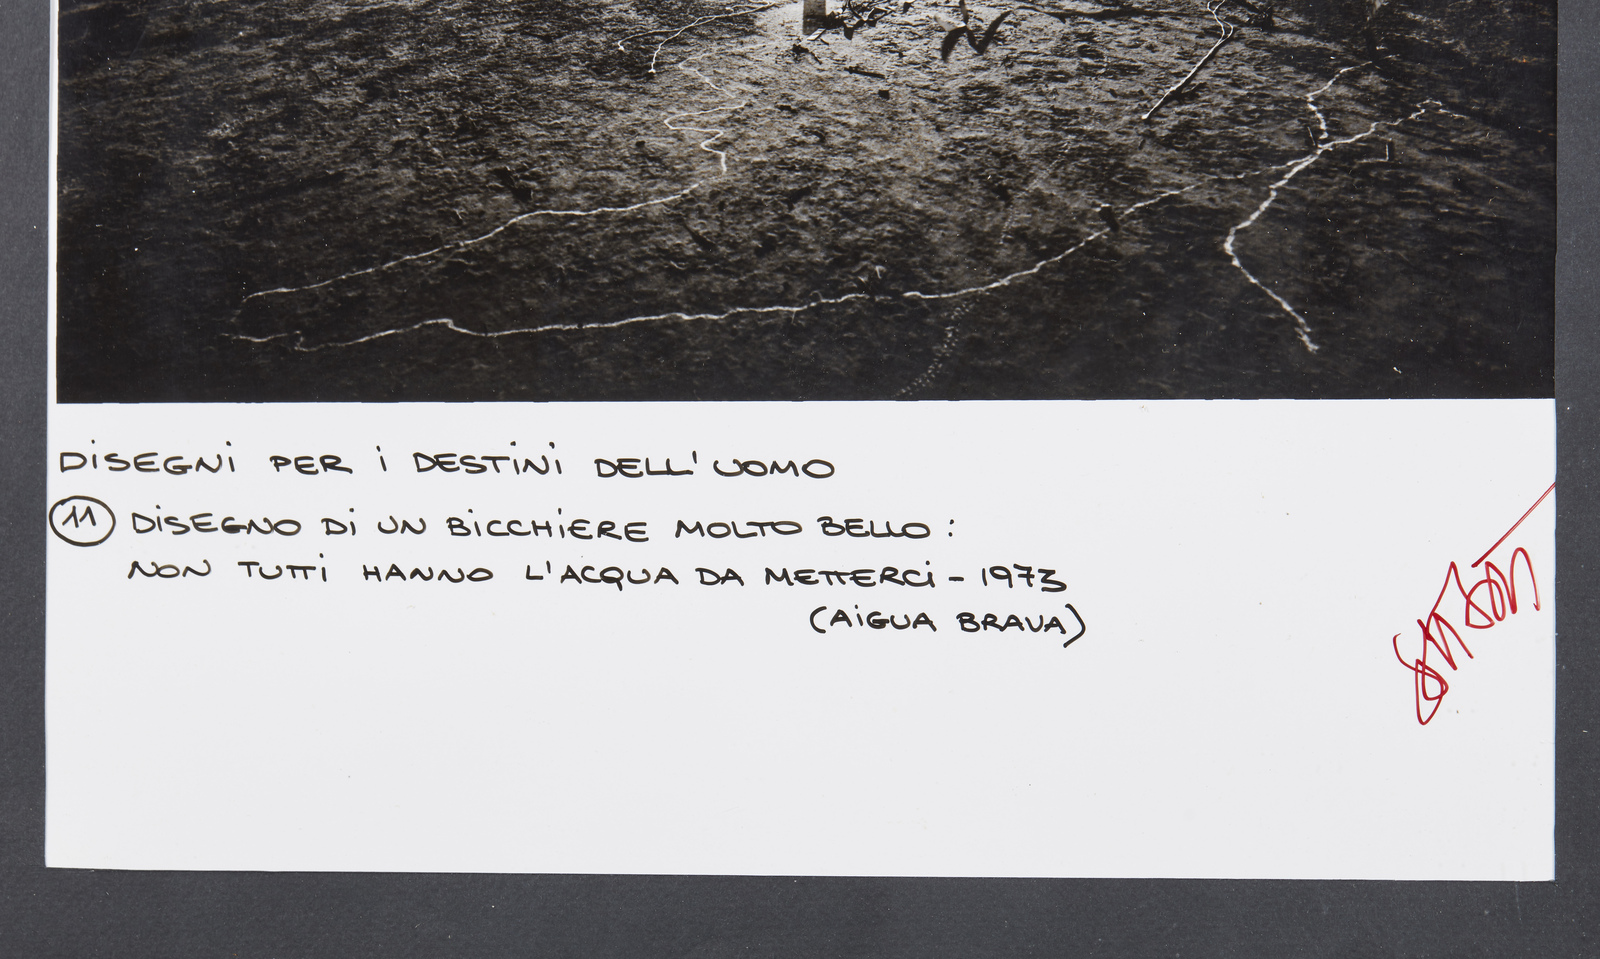 DISEGNI PER I DESTINI DELL'UOMO
11 DISEGNO DI UN BICCHIERE MOLTO BELLO :
NON TUTTI HANNO L'ACQUA DA METTERCI - 1973
(AIGUA BRAVA)